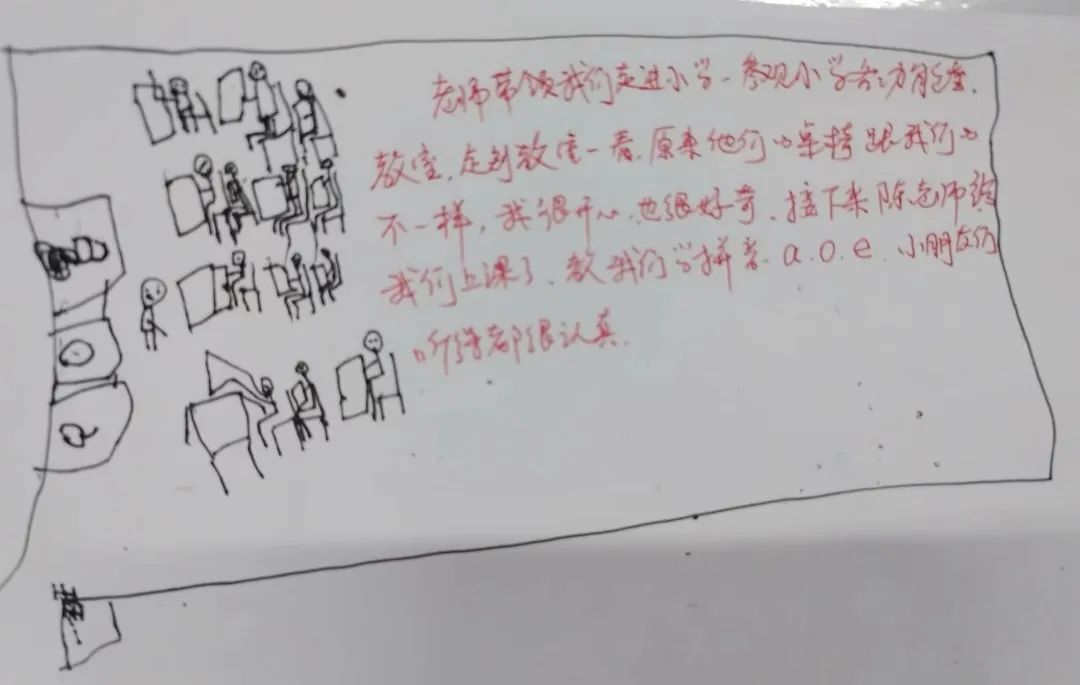 老师带领我们走进小学、参观小学各功能室、
教室、走到教室一看、原来他们的桌椅跟我们的
不一样，我很开心、也很好奇、接下来陈老师给
我们上课了、教我们学拼音、a.o.e、小朋友们
听得都很认真.